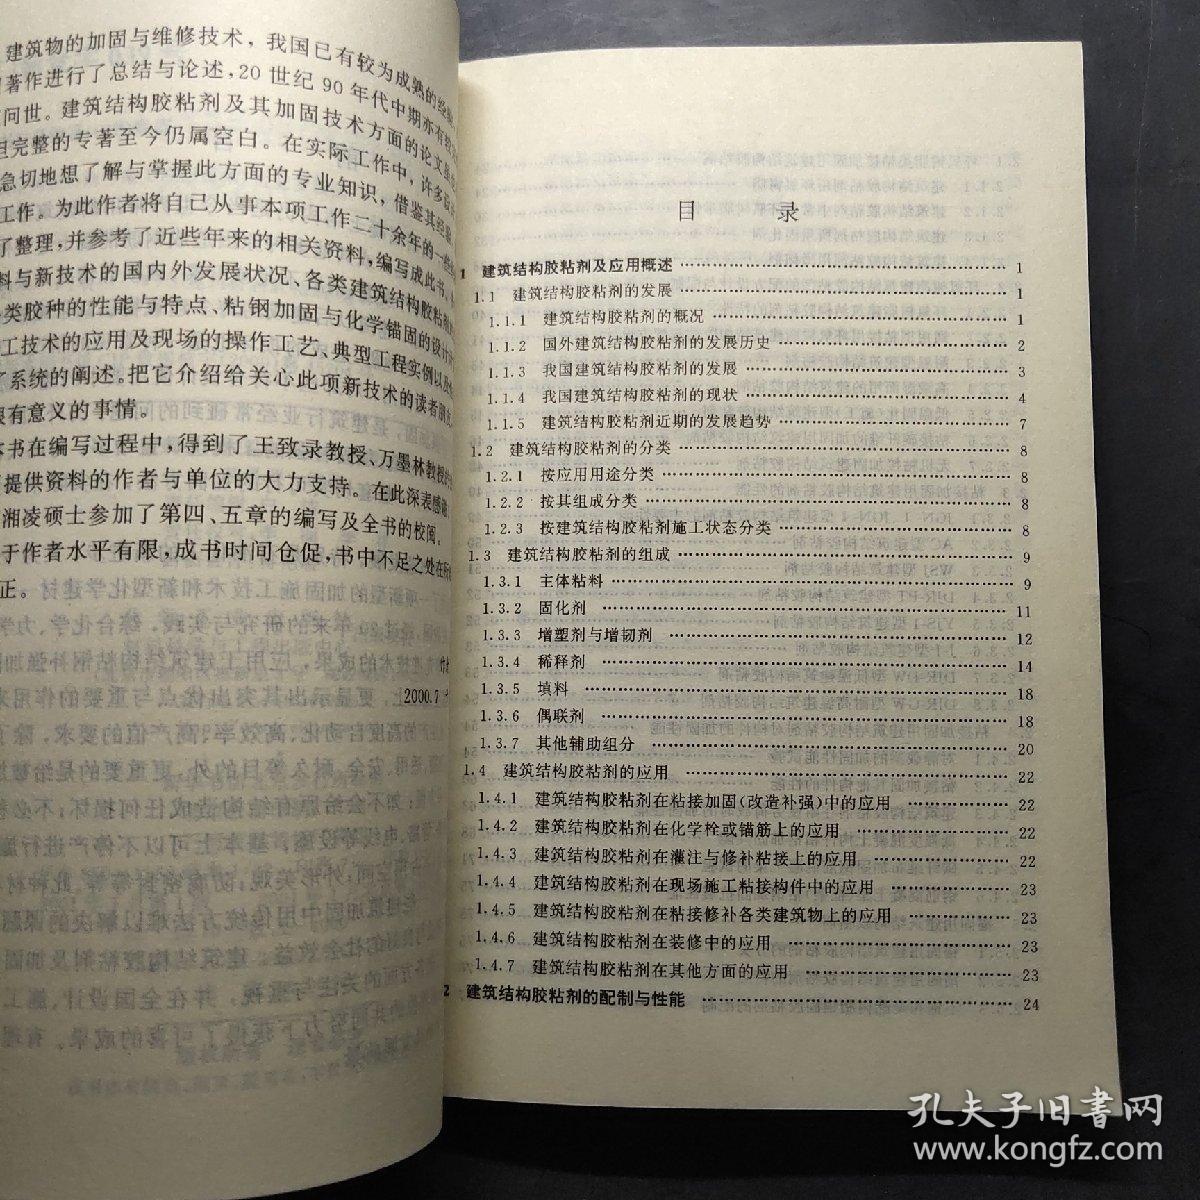 建筑物的加固与维修技术，我国已有较为成熟的经验
著作进行了总结与论述，20世纪90年代中期亦有较
问世。建筑结构胶粘剂及其加固技术方面的论文虽
完整的专著至今仍属空白。在实际工作中，许多
急切地想了解与掌握此方面的专业知识，借鉴其经验
工作。为此作者将自己从事本项工作二十余年的一些
了整理，并参考了近些年来的相关资料，编写成此书。
料与新技术的国内外发展状况、各类建筑结构胶粘剂
类胶种的性能与特点、粘钢加固与化学锚固的设计
工技术的应用及现场的操作工艺、典型工程实例以及
了系统的阐述。把它介绍给关心此项新技术的读者朋友
很有意义的事情。
本书在编写过程中，得到了王致录教授、万墨林教授的
提供资料的作者与单位的大力支持。在此深表感谢
湘凌硕士参加了第四、五章的编写及全书的校阅。
于作者水平有限，成书时间仓促，书中不足之处在所
正。
2000.7
目 录
1 建筑结构胶粘剂及应用概述 …… 1
1.1 建筑结构胶粘剂的发展 …… 1
1.1.1 建筑结构胶粘剂的概况 …… 1
1.1.2 国外建筑结构胶粘剂的发展历史 …… 2
1.1.3 我国建筑结构胶粘剂的发展 …… 3
1.1.4 我国建筑结构胶粘剂的现状 …… 4
1.1.5 建筑结构胶粘剂近期的发展趋势 …… 7
1.2 建筑结构胶粘剂的分类 …… 8
1.2.1 按应用用途分类 …… 8
1.2.2 按其组成分类 …… 8
1.2.3 按建筑结构胶粘剂施工状态分类 …… 8
1.3 建筑结构胶粘剂的组成 …… 9
1.3.1 主体粘料 …… 9
1.3.2 固化剂 …… 11
1.3.3 增塑剂与增韧剂 …… 12
1.3.4 稀释剂 …… 14
1.3.5 填料 …… 18
1.3.6 偶联剂 …… 18
1.3.7 其他辅助组分 …… 20
1.4 建筑结构胶粘剂的应用 …… 22
1.4.1 建筑结构胶粘剂在粘接加固(改造补强)中的应用 …… 22
1.4.2 建筑结构胶粘剂在化学栓或锚筋上的应用 …… 22
1.4.3 建筑结构胶粘剂在灌注与修补粘接上的应用 …… 22
1.4.4 建筑结构胶粘剂在现场施工粘接构件中的应用 …… 23
1.4.5 建筑结构胶粘剂在粘接修补各类建筑物上的应用 …… 23
1.4.6 建筑结构胶粘剂在装修中的应用 …… 23
1.4.7 建筑结构胶粘剂在其他方面的应用 …… 23
2 建筑结构胶粘剂的配制与性能 …… 24
孔夫子旧书网
www.kongfz.com